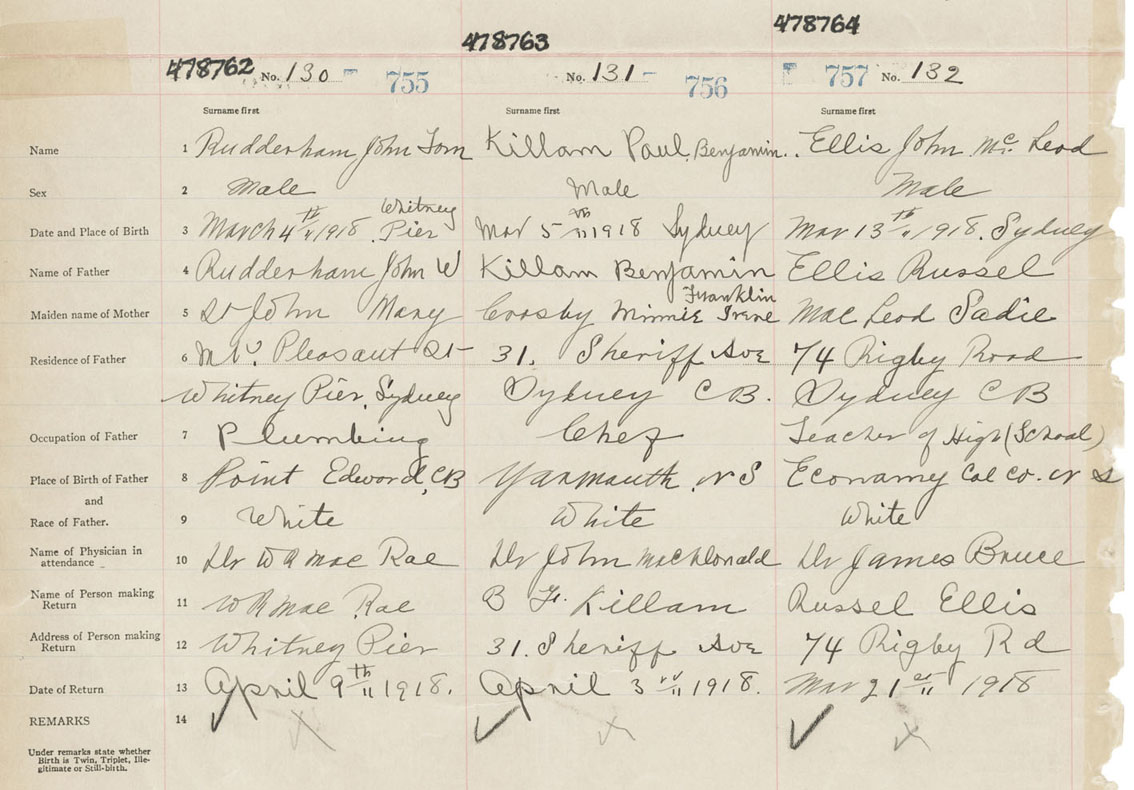 478762 No. 130 755
478763 No. 131 756
478764 757 No. 132
Surname first Surname first Surname first
Name 1 Rudderham John Tom Killam Paul Benjamin. Ellis John Mc Leod
Sex 2 Male Male Male
Whitney
Date and Place of Birth 3 March 4th 1918. Pier Mar 5th 1918 Sydney Mar 13th 1918. Sydney
Name of Father 4 Rudderham John W Killam Benjamin Ellis Russel
Franklin
Maiden name of Mother 5 St John Mary Crosby Minnie Irene Mac Leod Sadie
Residence of Father 6 Mt. Pleasant St 31. Sheriff Ave 74 Rigby Road
Whitney Pier, Sydney Sydney C B. Sydney C B
Occupation of Father 7 Plumbing Chef Teacher of High (School)
Place of Birth of Father 8 Point Edward, CB Yarmouth, N S Economy Col Co. N S
and
Race of Father. 9 White White White
Name of Physician in
attendance 10 Dr W R Mac Rae Dr John MacDonald Dr James Bruce
Name of Person making
Return 11 W R Mac Rae B F. Killam Russel Ellis
Address of Person making
Return 12 Whitney Pier 31. Sheriff Ave 74 Rigby Rd
Date of Return 13 April 9th 1918. April 3rd 1918. Mar 21st 1918
REMARKS 14
Under remarks state whether
Birth is Twin, Triplet, Ille-
gitimate or Still-birth.